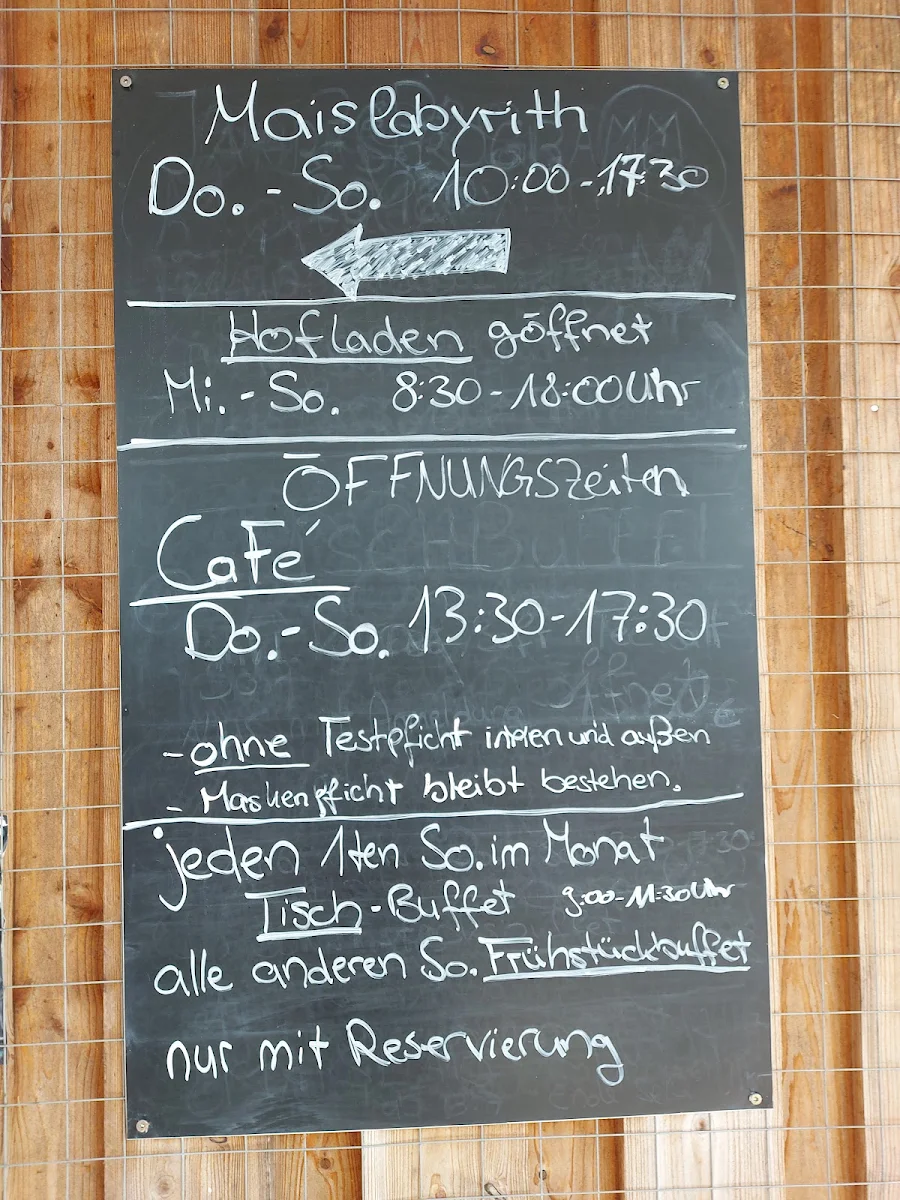 Maislabyrith
Do. - So. 10:00 - 17:30
Hofladen göffnet
Mi. - So. 8:30 - 18:00 Uhr
ÖFFNUNGSZeiten
CaFé
Do. - So. 13:30 - 17:30
- ohne Testpflicht innen und außen
- Maskenpflicht bleibt bestehen.
jeden 1ten So. im Monat
Tisch - Buffet 9:00 - 11:30 Uhr
alle anderen So. Frühstücksbuffet
nur mit Reservierung